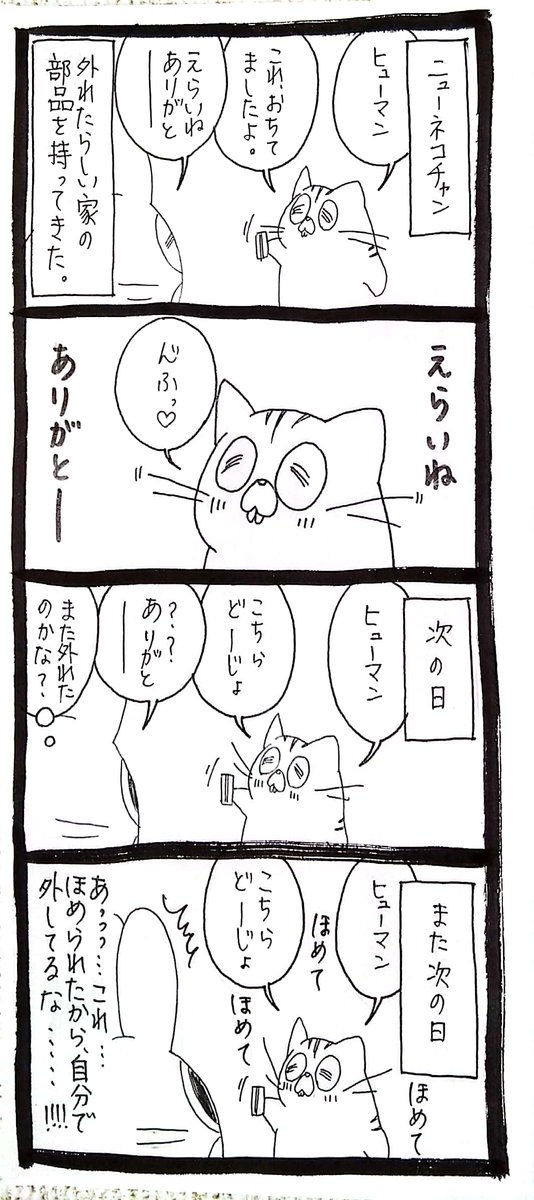 ニューネコチャン
ヒューマン
これ、おちて
ましたよ。
えらいね
ありがと
ー
外れたらしい家の
部品を持ってきた。
えらいね
んふっ♡
ありがとー
次の日
ヒューマン
こちら
どーじょ
？？？
ありがと
ー
また外れた
のかな？
また次の日
ヒューマン
ほめて
こちら
どーじょ
ほめて
ほめて
あっっっ…これ…
ほめられたから、自分で
外してるな……!!!!